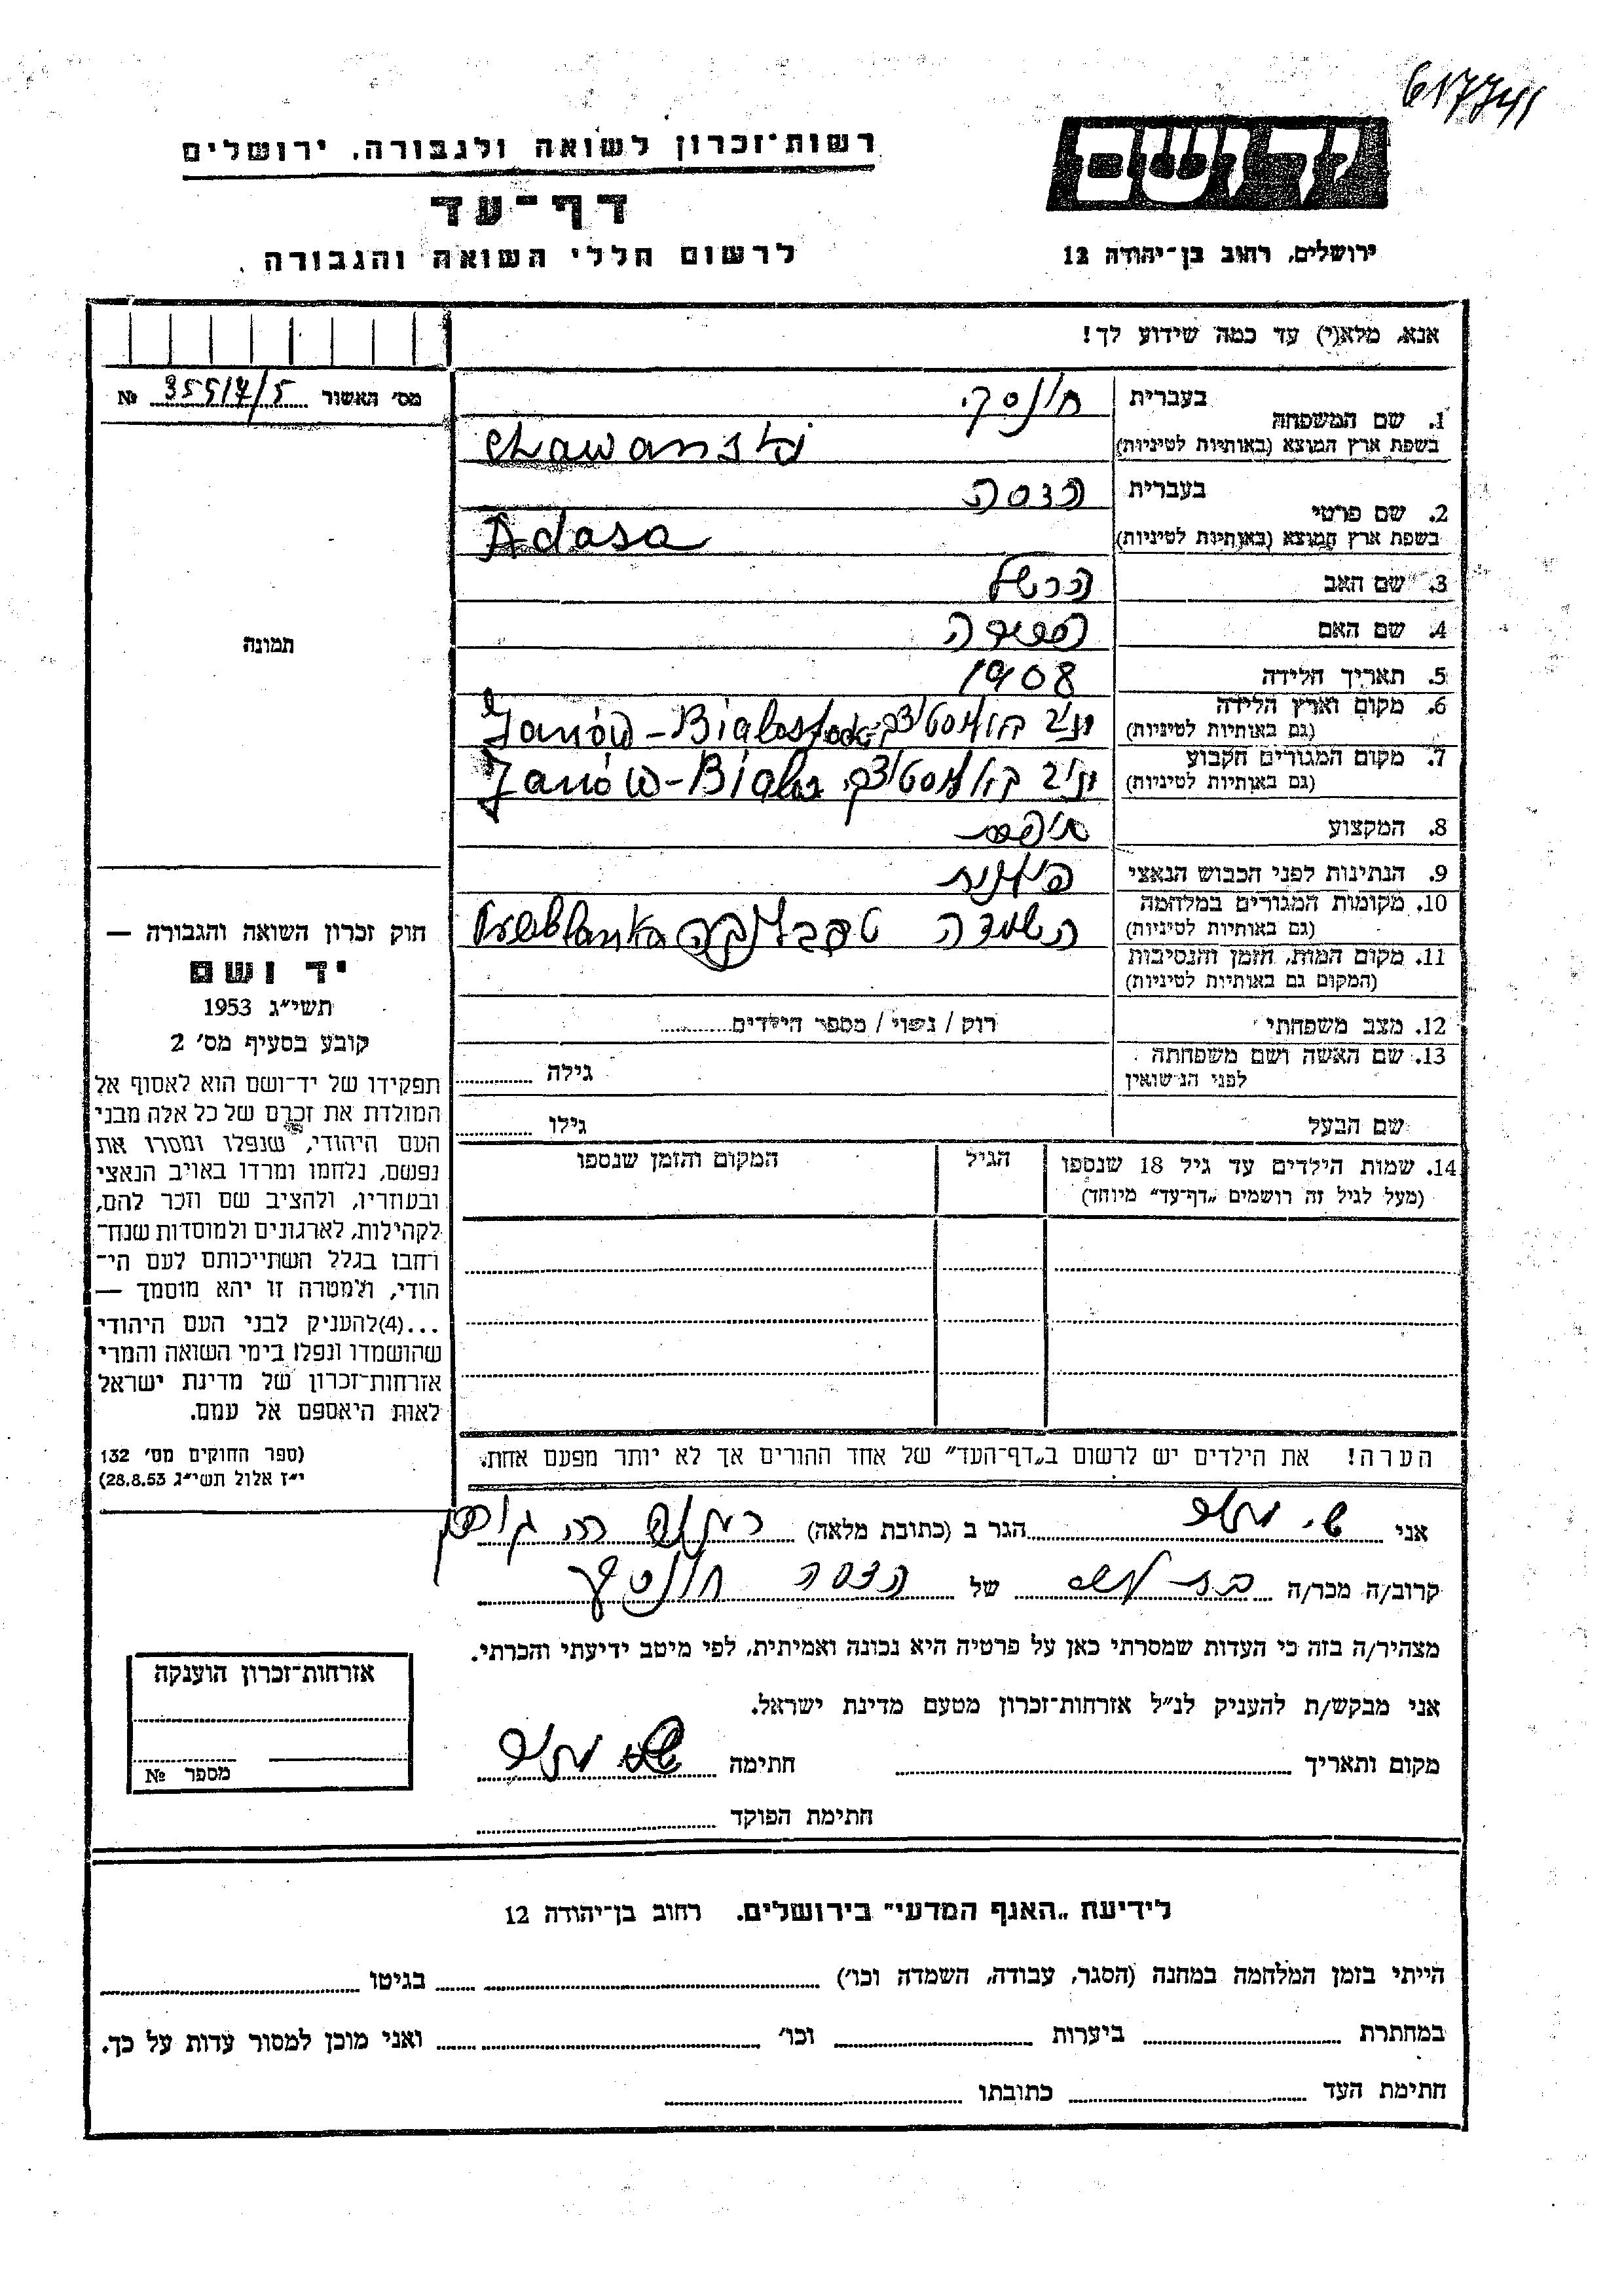 617741
רשות־זכרון לשואה ולגבורה, ירושלים
דף־עד
לרשום חללי השואה והגבורה
יד ושם
ירושלים, רחוב בן־יהודה 12
אנא, מלא(י) עד כמה שידוע לך!
מס׳ האשור 35517/5 №
1. שם המשפחה בעברית
בשפת ארץ המוצא (באותיות לטיניות)
חונסקי
Chawanski
2. שם פרטי בעברית
בשפת ארץ המוצא (באותיות לטיניות)
הדסה
Adasa
3. שם האב הרשל
4. שם האם
5. תאריך הלידה 1908
6. מקום וארץ הלידה
(גם באותיות לטיניות)
Janów - Białostock
7. מקום המגורים הקבוע
(גם באותיות לטיניות)
Janów - Białos
8. המקצוע
9. הנתינות לפני הכבוש הנאצי פולנית
10. מקומות המגורים במלחמה
(גם באותיות לטיניות)
השמדה טרבלינקה Treblanka
11. מקום המות, הזמן והנסיבות
(המקום גם באותיות לטיניות)
12. מצב משפחתי רוק / נשוי / מספר הילדים
13. שם האשה ושם משפחתה
לפני הנישואין
גילה
שם הבעל גילו
14. שמות הילדים עד גיל 18 שנספו
(מעל לגיל זה רושמים „דף־עד״ מיוחד)
הגיל
המקום והזמן שנספו
הערה! את הילדים יש לרשום ב„דף־העד״ של אחד ההורים אך לא יותר מפעם אחת.
תמונה
חוק זכרון השואה והגבורה —
יד ושם
תשי״ג 1953
קובע בסעיף מס׳ 2
תפקידו של יד־ושם הוא לאסוף אל
המולדת את זכרם של כל אלה מבני
העם היהודי, שנפלו ומסרו את
נפשם, נלחמו ומרדו באויב הנאצי
ובעוזריו, ולהציב שם וזכר להם,
לקהילות, לארגונים ולמוסדות שנח־
רחבו בגלל השתייכותם לעם הי־
הודי, ולמטרה זו יהא מוסמך —
...(4)להעניק לבני העם היהודי
שהושמדו ונפלו בימי השואה והמרי
אזרחות־זכרון של מדינת ישראל
לאות היאספם אל עמם.
(ספר החוקים מס׳ 132
י״ז אלול תשי״ג 28.8.53)
אני הגר ב (כתובת מלאה)
קרוב/ה מכר/ה של הדסה חונסקי
מצהיר/ה בזה כי העדות שמסרתי כאן על פרטיה היא נכונה ואמיתית, לפי מיטב ידיעתי והכרתי.
אני מבקש/ת להעניק לנ״ל אזרחות־זכרון מטעם מדינת ישראל.
מקום ותאריך חתימה
חתימת הפוקד
אזרחות־זכרון הוענקה
מספר №
לידיעת „האגף המדעי״ בירושלים. רחוב בן־יהודה 12
הייתי בזמן המלחמה במחנה (הסגר, עבודה, השמדה וכו׳) בגיטו
במחתרת ביערות וכו׳ ואני מוכן למסור עדות על כך.
חתימת העד כתובתו